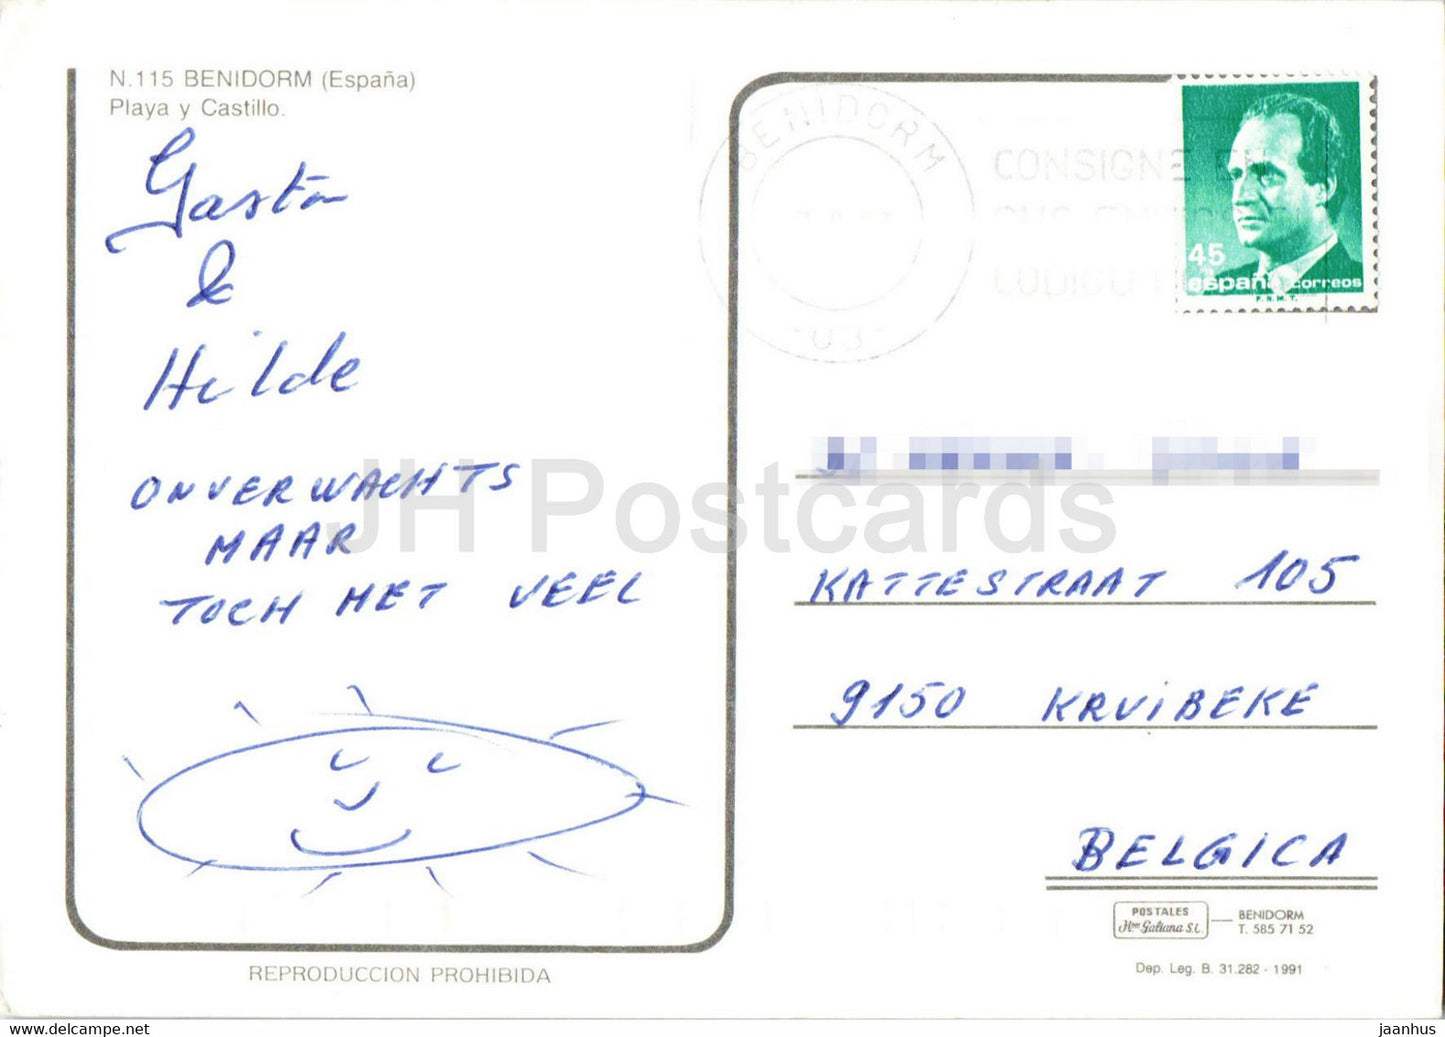 N.115 BENIDORM (España)
Playa y Castillo.
Gaston
&
Hilde
ONVERWACHTS
MAAR
TOCH MET VEEL
BENIDORM
03
CONSIGNE EN
CODIGO
45
españa correos
F.N.M.T.
KATTESTRAAT 105
9150 KRUIBEKE
BELGICA
POSTALES
Hnos Galiana S.L.
BENIDORM
T. 585 71 52
Dep. Leg. B. 31.282 - 1991
REPRODUCCION PROHIBIDA
JH Postcards
www.delcampe.net
jaanhus